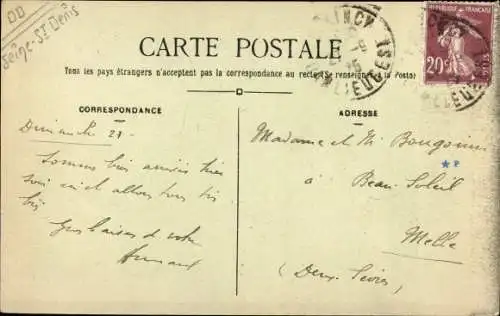 DD
Seine-St Denis
CARTE POSTALE
Tous les pays étrangers n'acceptent pas la correspondance au recto (Se renseigner à la Poste)
RÉPUBLIQUE FRANÇAISE
20c
CORRESPONDANCE
Dimanche 28
Sommes bien arrivés hier
soir et allons tous
Gros baisers de votre
Armand
ADRESSE
Madame et Mr
à Beau Soleil
Melle
(Deux Sèvres)